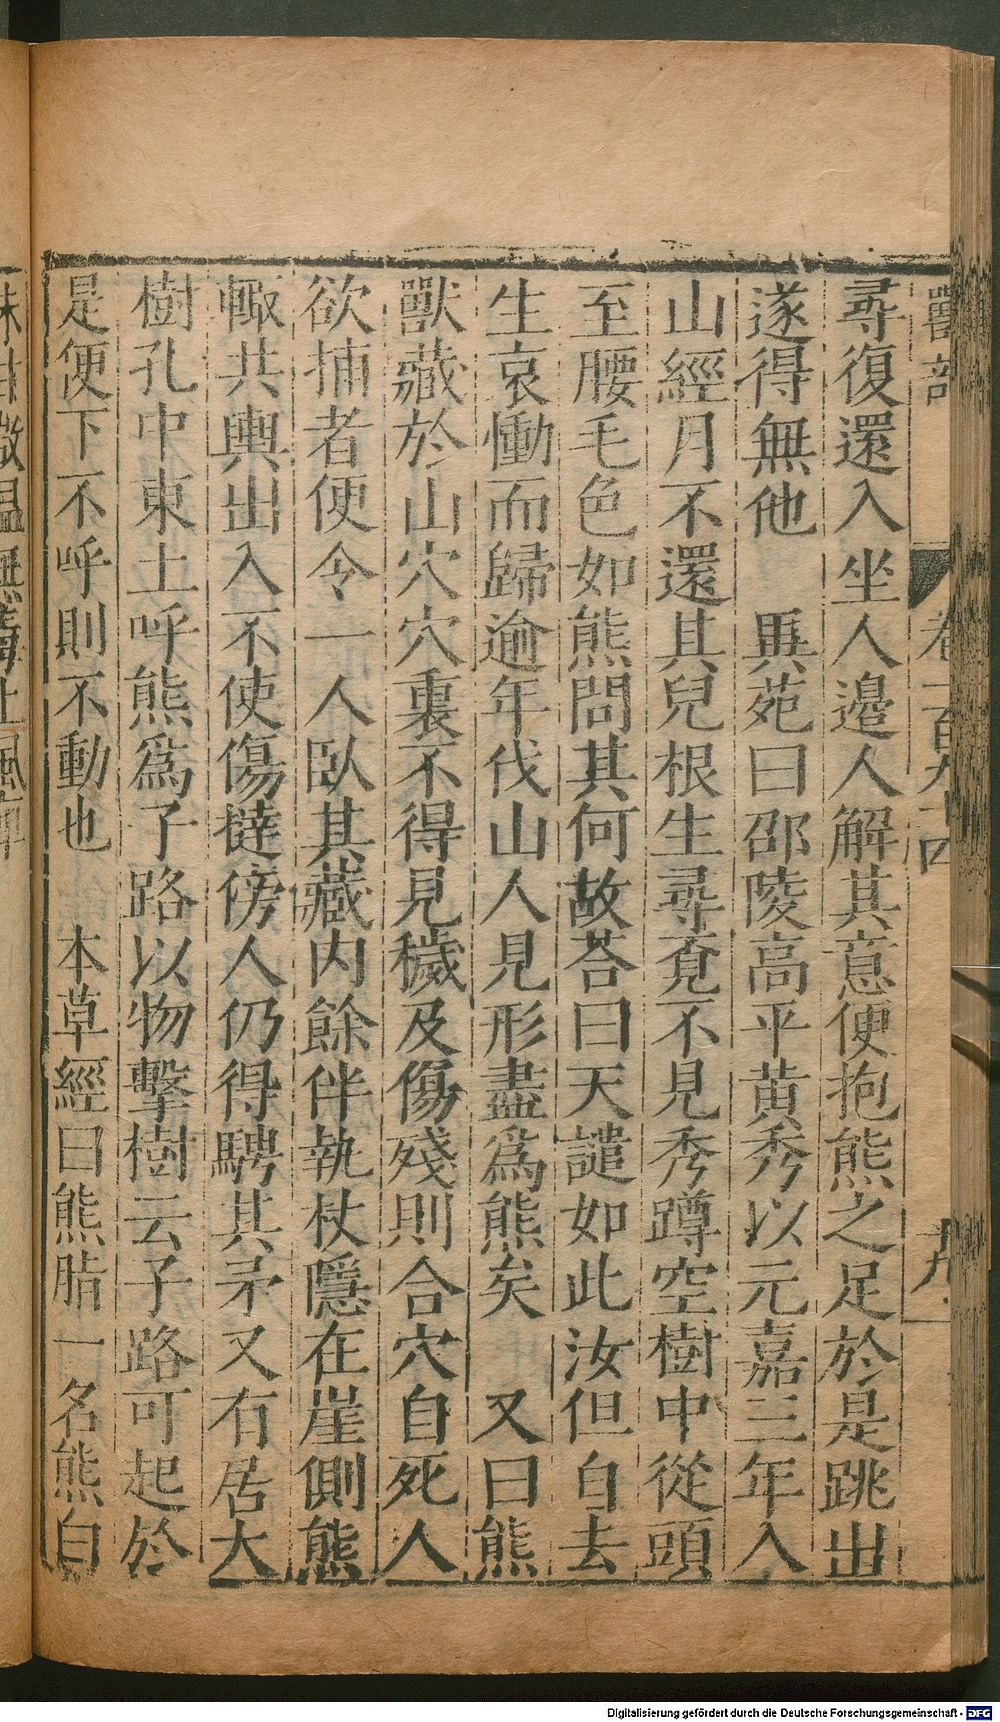 獸部 卷一百九十四 十九
尋復還入坐人邊人解其意便抱熊之足於是跳出
遂得無他 異苑曰邵陵高平黃秀以元嘉三年入
山經月不還其兒根生尋覔不見秀蹲空樹中從頭
至腰毛色如熊問其何故荅曰天譴如此汝但自去
生哀慟而歸逾年伐山人見形盡爲熊矣 又曰熊
獸藏於山穴穴裏不得見穢及傷殘則合穴自死人
欲捕者便令一人臥其藏内餘伴執杖隱在崖側熊
輙共輿出入不使傷撻傍人仍得騁其矛又有居大
樹孔中東土呼熊爲子路以物擊樹云子路可起於
是便下不呼則不動也 本草經曰熊脂一名熊白
Digitalisierung gefördert durch die Deutsche Forschungsgemeinschaft - DFG